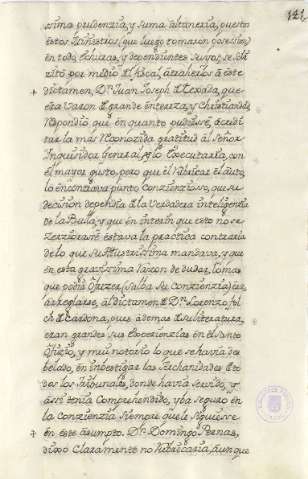 121
ssima prudenzia, y suma altanexia, puesto
estos Ministros, que luego tomaron posession
en todo hechuras, y dependientes suyos, se soli-
zitó por medio del fiscal, atraherlos á este
+ dictamen, Dn. Juan Joseph de texada, que
era Varon de grande entereza, y Christiandad
Respondió, que en quanto pudiesse, acredi-
tar la más Reconozida gratitud al Señor
Inquisidor General, lo executaria, con
el mayor gusto, pero que el Rubricar el auto,
lo encontrava punto Conzienzioso, que su
decision dependia de la Verdadera inteligenzia
de la Bulla, y que en interin que esto no se
estava la practica contraria
de lo que su Illustrissima mandava, y que
en esta gravissima razon de dudar, lo mas
que podia ofrezer, (salba su Conzienzia) era
arreglarse, al dictamen de Dn. Lorenzo fol-
ch de Cardona, pues ademas de su literatura,
eran grandes sus Experienzias en el Santo
Ofizio, y mui notorio lo que se havia des-
belado, en inbestigar las de to-
dos los tribunales, donde havia servido, y
assi tenia Comprehendido, yba seguro en
la Conzienzia siempre que le siguiesse
+ en este assumpto. Dn. Domingo
dixo Claramente no Rubricaria, aunque